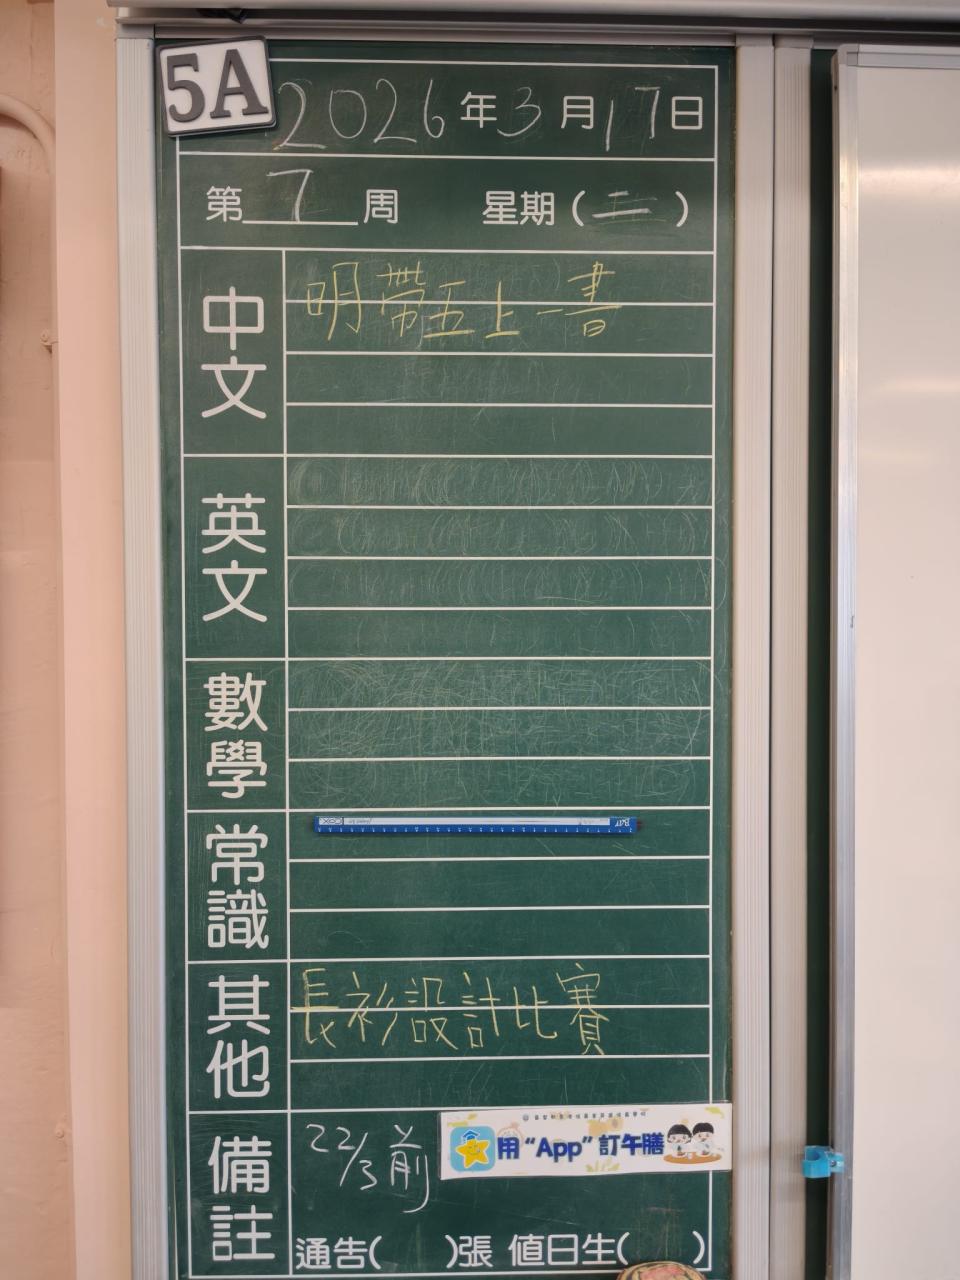 5A
2026年3月17日
第7周 星期(二)
中文
明帶五上一書
英文
數學
常識
其他
長衫設計比賽
備註
22/3前
用“App”訂午膳
通告( )張 值日生( )